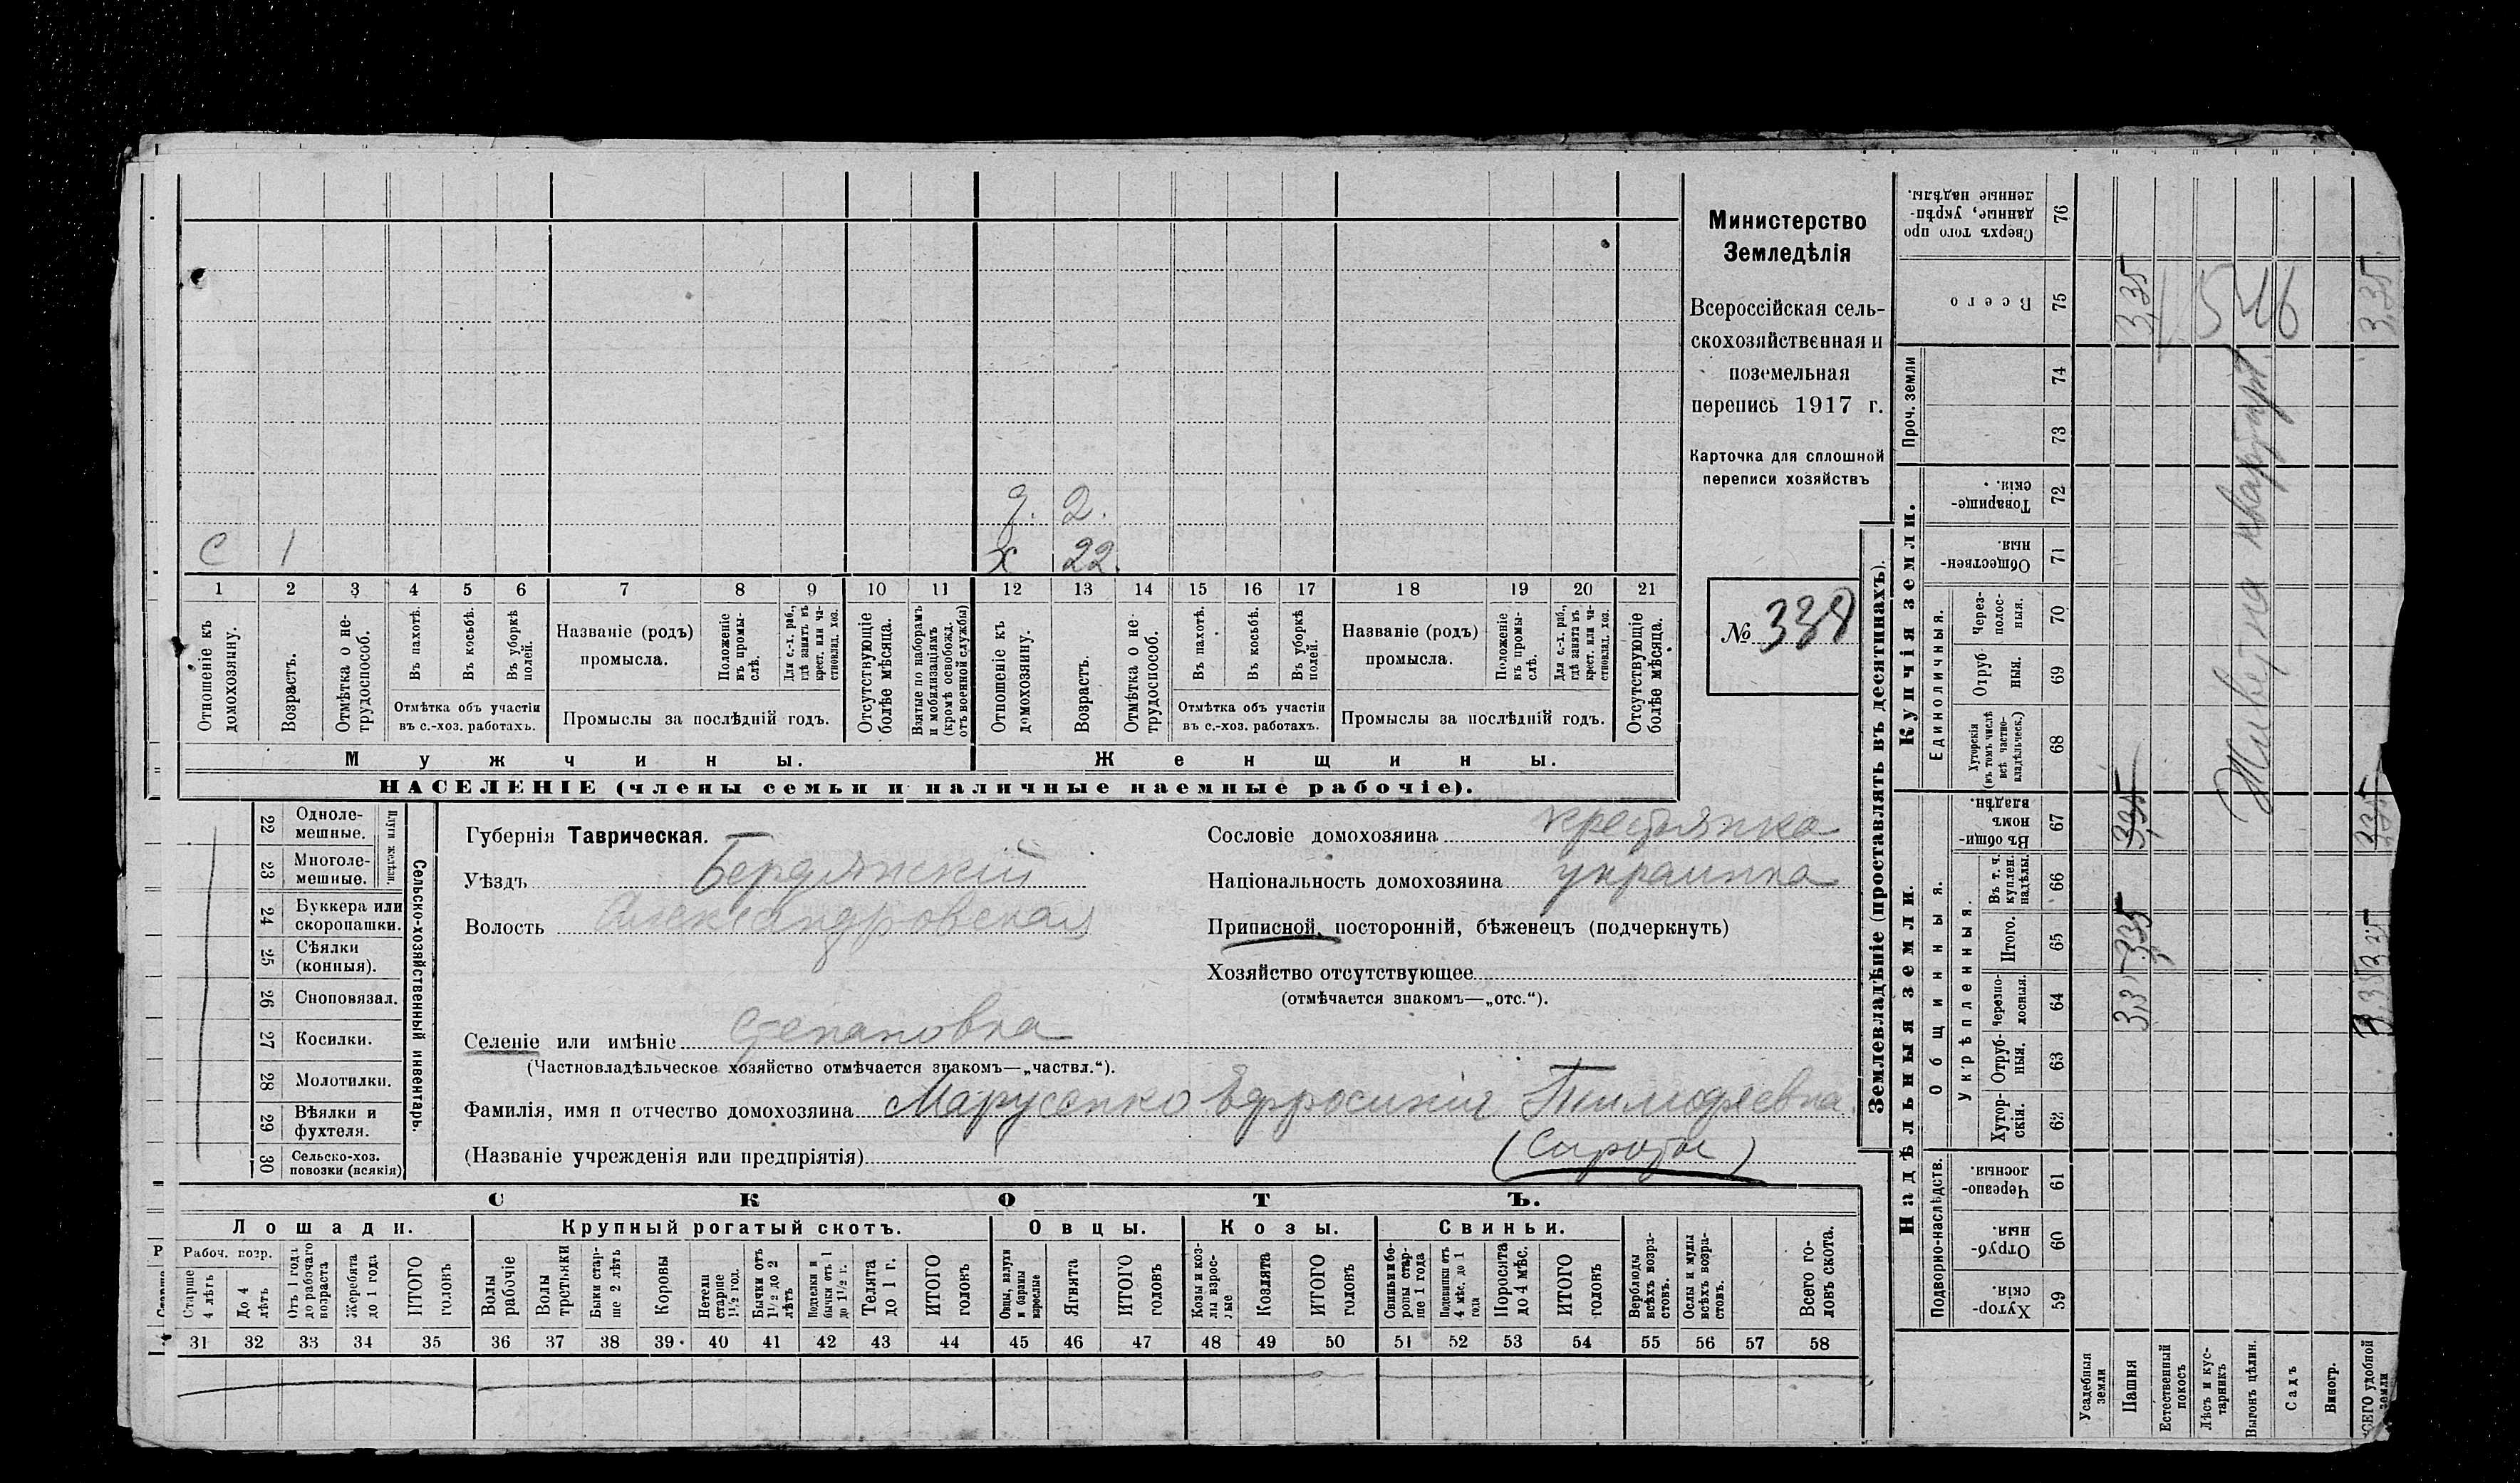 Министерство
Земледѣлія
Всероссійская сель-
скохозяйственная и
поземельная
перепись 1917 г.
Карточка для сплошной
переписи хозяйствъ
№ 338
д. 2.
С 1 х 22.
1 2 3 4 5 6 7 8 9 10 11 12 13 14 15 16 17 18 19 20 21
Отношеніе къ домохозяину.
Возрастъ.
Отмѣтка о не-трудоспособ.
Въ пахотѣ.
Въ косьбѣ.
Въ уборкѣ полей.
Отмѣтка объ участіи
въ с.-хоз. работахъ.
Названіе (родъ)
промысла.
Положеніе въ промы-слѣ.
Для с.-х. раб., гдѣ занятъ въ крест. или ча-стновлад. хоз.
Промыслы за послѣдній годъ.
Отсутствующіе болѣе мѣсяца.
Взятые по наборамъ и мобилизаціямъ (кромѣ освобожд. отъ военной службы)
Отношеніе къ домохозяину.
Возрастъ.
Отмѣтка о не-трудоспособ.
Въ пахотѣ.
Въ косьбѣ.
Въ уборкѣ полей.
Отмѣтка объ участіи
въ с.-хоз. работахъ.
Названіе (родъ)
промысла.
Положеніе въ промы-слѣ.
Для с.-х. раб., гдѣ занята въ крест. или ча-стновлад. хоз.
Промыслы за послѣдній годъ.
Отсутствующіе болѣе мѣсяца.
Мужчины.
Женщины.
НАСЕЛЕНІЕ (члены семьи и наличные наемные рабочіе).
22 Одноле-мешные.
23 Многоле-мешные.
Плуги желѣзн.
24 Буккера или скоропашки.
25 Сѣялки (конныя).
26 Сноповязал.
27 Косилки.
28 Молотилки.
29 Вѣялки и фухтеля.
30 Сельско-хоз. повозки (всякія)
Сельско-хозяйственный инвентарь.
Губернія Таврическая.
Уѣздъ Бердянскій
Волость Александровская
Сословіе домохозяина крестьянка
Національность домохозяина украинка
Приписной, посторонній, бѣженецъ (подчеркнуть)
Хозяйство отсутствующее
(отмѣчается знакомъ—„отс.“).
Селеніе или имѣніе Степановка
(Частновладѣльческое хозяйство отмѣчается знакомъ—„частвл.“).
Фамилія, имя и отчество домохозяина Марусенко Ефросинія Тимофеевна.
(Названіе учрежденія или предпріятія) (Сироты)
СКОТЪ.
Лошади.
Крупный рогатый скотъ.
Овцы.
Козы.
Свиньи.
Рабоч. возр.
Старше 4 лѣтъ
До 4 лѣтъ
Отъ 1 года до рабочаго возраста
Жеребята до 1 года
ИТОГО головъ
Волы рабочіе
Волы третьяки
Быки стар-ше 2 лѣтъ
Коровы
Нетели старше 1½ год.
Бычки отъ 1½ до 2 лѣтъ
Подтелки и бычки отъ 1 до 1½ г.
Телята до 1 г.
ИТОГО головъ
Овцы, валухи и бараны взрослые
Ягнята
ИТОГО головъ
Козы и коз-лы взрос-лые
Козлята
ИТОГО головъ
Свиньи и бо-ровы стар-ше 1 года
Подсвинки отъ 4 мѣс. до 1 года
Поросята до 4 мѣс.
ИТОГО головъ
Верблюды всѣхъ возра-стовъ.
Ослы и мулы всѣхъ возра-стовъ.
Всего го-ловъ скота.
31 32 33 34 35 36 37 38 39 40 41 42 43 44 45 46 47 48 49 50 51 52 53 54 55 56 57 58
Землевладѣніе (проставлять въ десятинахъ).
Надѣльныя земли.
Купчія земли.
Проч. земли
Подворно-наслѣдств.
Общинныя.
Укрѣпленныя.
Единоличныя.
Хутор-скія. 59
Отруб-ныя. 60
Черезпо-лосныя. 61
Хутор-скія. 62
Отруб-ныя. 63
Черезпо-лосныя. 64
Итого. 65
Въ т. ч. куплен. надѣлы. 66
Въ общин-номъ владѣн. 67
Хуторскія (въ томъ числѣ всѣ частно-владѣльческ.) 68
Отруб ныя. 69
Через-полос-ныя. 70
Обществен-ныя. 71
Товарище-скія. 72
73
74
Всего 75
Сверхъ того про данные, укрѣп-ленные надѣлы. 76
Усадебныя земли
Пашня 3,35 3,35 3,35 3,35
Естественный покосъ
Лѣсъ и кус-тарникъ
Выгонъ цѣлин.
Садъ
Виногр.
ВСЕГО удобной земли 3,35 3,35 3,35 3,35
Живет на квартире